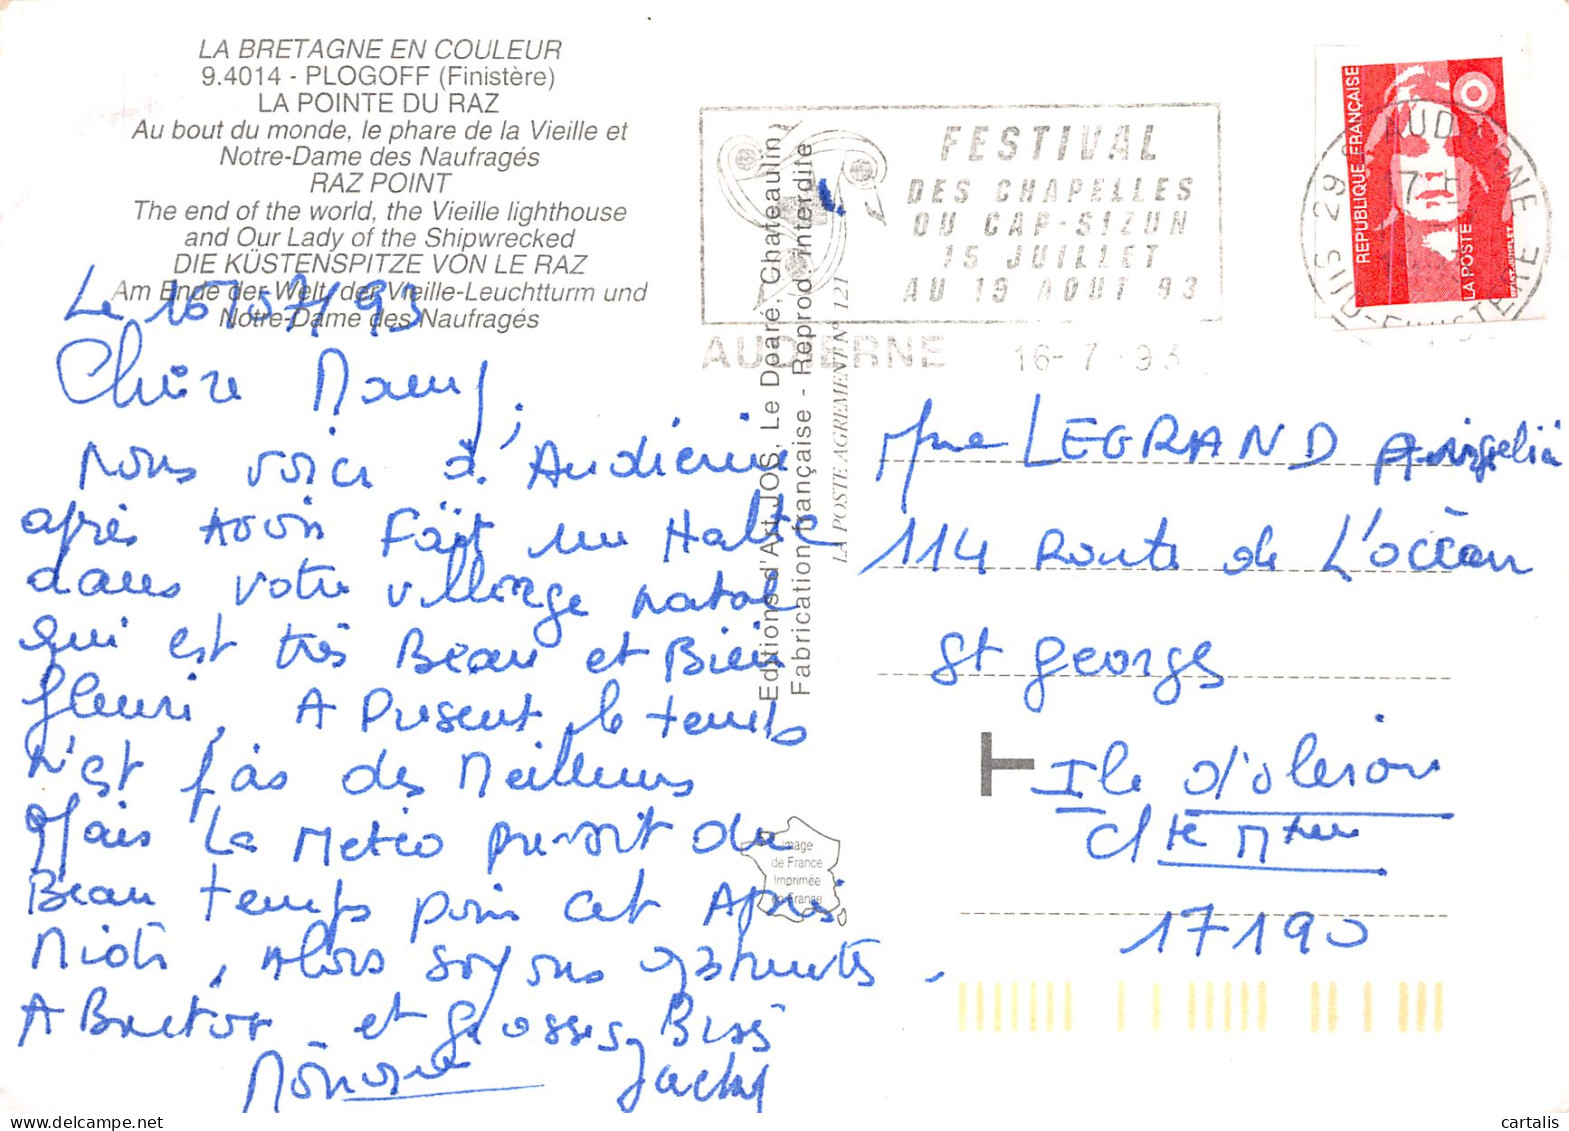 LA BRETAGNE EN COULEUR
9.4014 - PLOGOFF (Finistère)
LA POINTE DU RAZ
Au bout du monde, le phare de la Vieille et
Notre-Dame des Naufragés
RAZ POINT
The end of the world, the Vieille lighthouse
and Our Lady of the Shipwrecked
DIE KÜSTENSPITZE VON LE RAZ
Am Ende der Welt, der Vieille-Leuchtturm und
Notre-Dame des Naufragés
Le 16/07/93
Chère
nous voici à Audierne
après Avoir Fait une Halte
dans votre village natal
qui est très Beau et Bien
fleuri, A Présent le temps
n'est pas des Meilleurs
Mais La Météo prévoit du
Beau temps pour cet Après
Midi, Alors soyons patients,
A Bientôt et grosses Bises
Jacky
Editions d'Art JOS, Le Doaré, Chateaulin
Fabrication française - Reprod. interdite
LA POSTE AGREMENT N° 121
FESTIVAL
DES CHAPELLES
DU CAP-SIZUN
15 JUILLET
AU 19 AOUT 93
AUDIERNE 16-7-93
REPUBLIQUE FRANÇAISE
LA POSTE
29 AUDIERNE
SUD-FINISTERE
Mme LEGRAND
114 Route de L'océan
St Georges
Ile d'oleron
Chte Mtme
17190
Image
de France
Imprimée
en France
cartalis